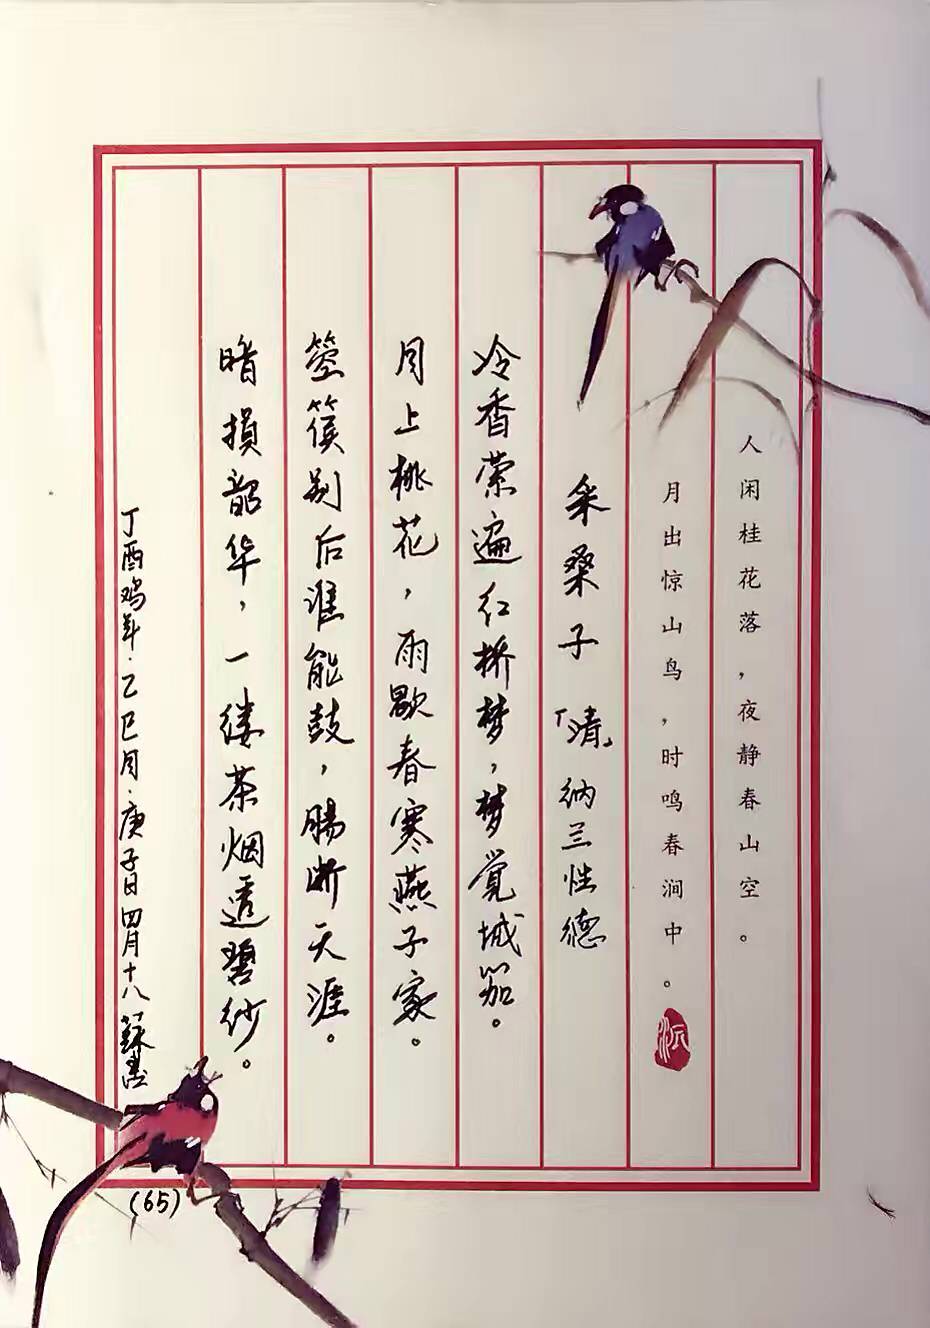 人闲桂花落，夜静春山空。
月出惊山鸟，时鸣春涧中。
采桑子「清」纳兰性德
冷香萦遍红桥梦，梦觉城笳。
月上桃花，雨歇春寒燕子家。
箜篌别后谁能鼓，肠断天涯。
暗损韶华，一缕茶烟透碧纱。
丁酉鸡年·乙巳月·庚子日四月十八
(65)